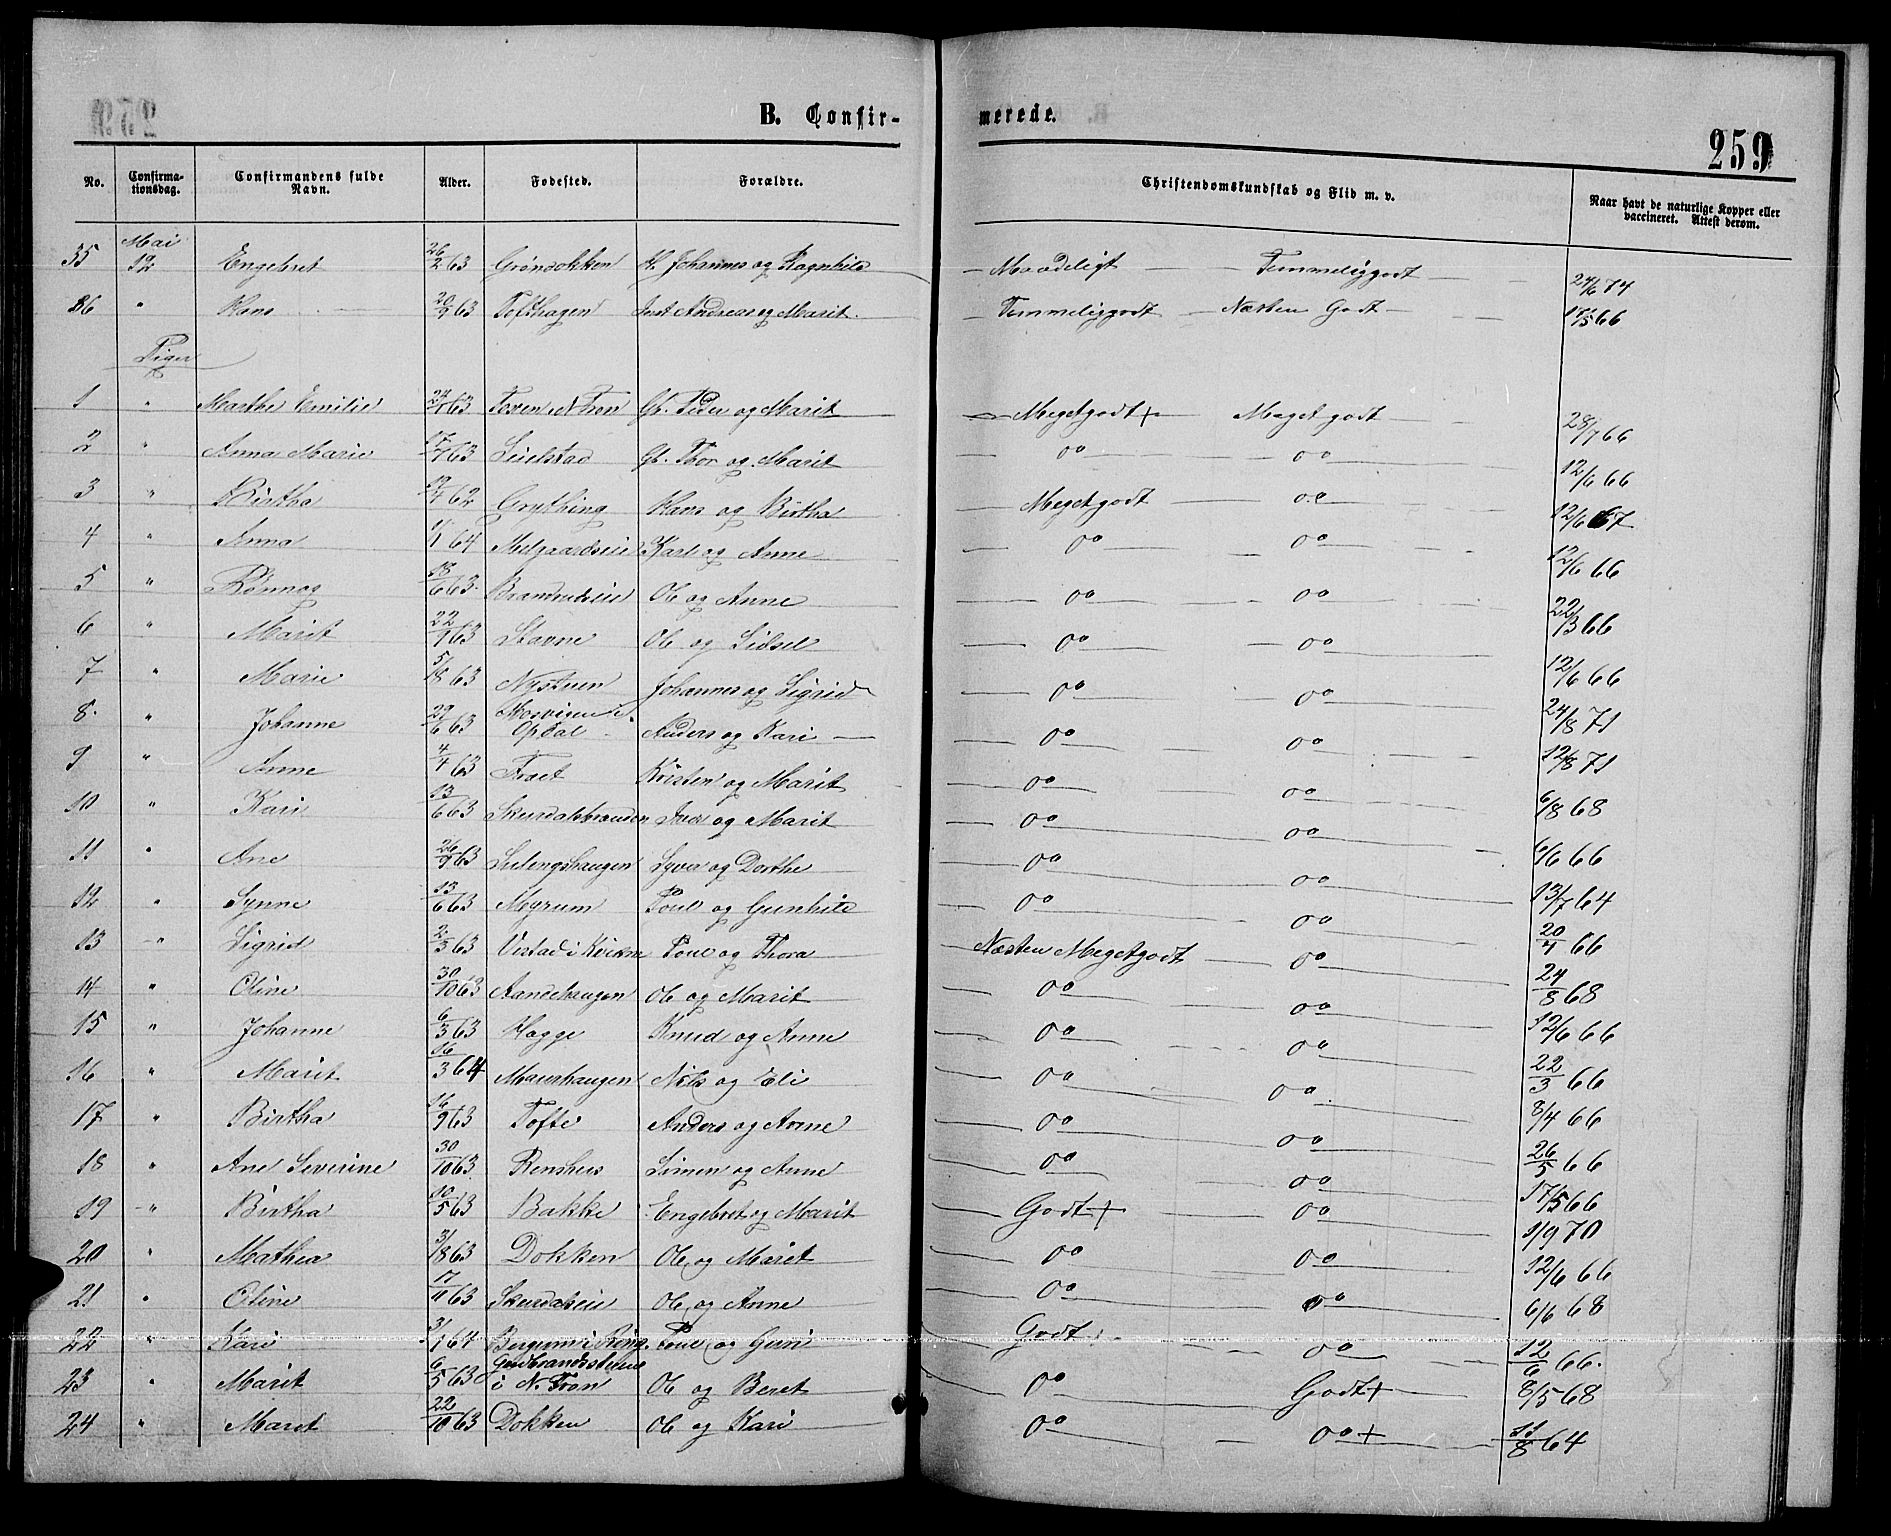 B. Confir-
merede.
259
No. Confirma-tionsdag. Confirmandens fulde Navn. Alder. Fødested. Forældre. Christendomskundskab og Flid m. v. Naar havt de naturlige Kopper eller vaccineret. Attest derom.
35 Mai 12 Engebret 26/2 63 Grøndokken Johannes og Ragnhild Maadeligt Temmeliggodt 24/6 74
36 " Hans 20/9 63 Tofthagen Andreas og Marit Temmeliggodt Næsten Godt 17/5 66
Piger
1 " Marthe Emilie 63 N Fron Gb. Peder og Marit Megetgodt+ Meget godt 28/7 66
2 " Anna Marie 63 Lielstad Gb. Thor og Marit do do 12/6 66
3 " Birtha 62 Grything Hans og Birtha Megetgodt do 12/6 67
4 " Anna 1/1 64 Melgaardseie Karl og Anne do do 12/6 66
5 " Rønnog 18/6 63 Brandrudseie Ole og Anne do do 22/3 66
6 " Marit 22/7 63 Stavne Ole og Sidsel do do 12/6 66
7 " Marie 5/8 63 Nystuen Johannes og Sigrid do do 24/8 71
8 " Johanne 29/6 63 Næsvigen i Opdal Anders og Kari do do 12/8 71
9 " Anne 4/4 63 Troet Kristen og Marit do do 6/8 68
10 " Kari 13/6 63 Skurdalsbranden Iver og Marit do do 6/6 66
11 " Ane 26/9 63 Syver og Dorthe do do 13/7 64
12 " Synne 13/6 63 Myrum Poul og Gunhild do do 20/4 66
13 " Sigrid 2/3 63 Vistad i Kvikne Poul og Thora Næsten Megetgodt do 24/8 68
14 " Oline 30/10 63 Aandehaugen Ole og Marit do do 12/6 66
15 " Johanne 6/3 63 Hagge Knud og Anne do do 22/3 66
16 " Marit 16/3 64 Maurhaugen Nils og Eli do do 8/4 66
17 " Birtha 16/9 63 Tofte Anders og Anne do do 26/5 66
18 " Ane Severine 30/10 63 Renshus Simen og Anne do do 17/5 66
19 " Birtha 10/5 63 Bakke Engebret og Marit Godt+ do 1/9 70
20 " Mathea 3/8 63 Dokken Ole og Marit do do 12/6 66
21 " Oline 17/11 63 Skurdaleie Ole og Anne do do 6/6 68
22 " Kari 3/1 64 Bergum i Ring. Poul og Guri Godt do 12/6 66.
23 " Marit 6/5 63 i N. Fron Ole og Beret do Godt+ 8/5 68
24 " Marit 22/10 63 Dokken Ole og Kari do do+ 11/8 64